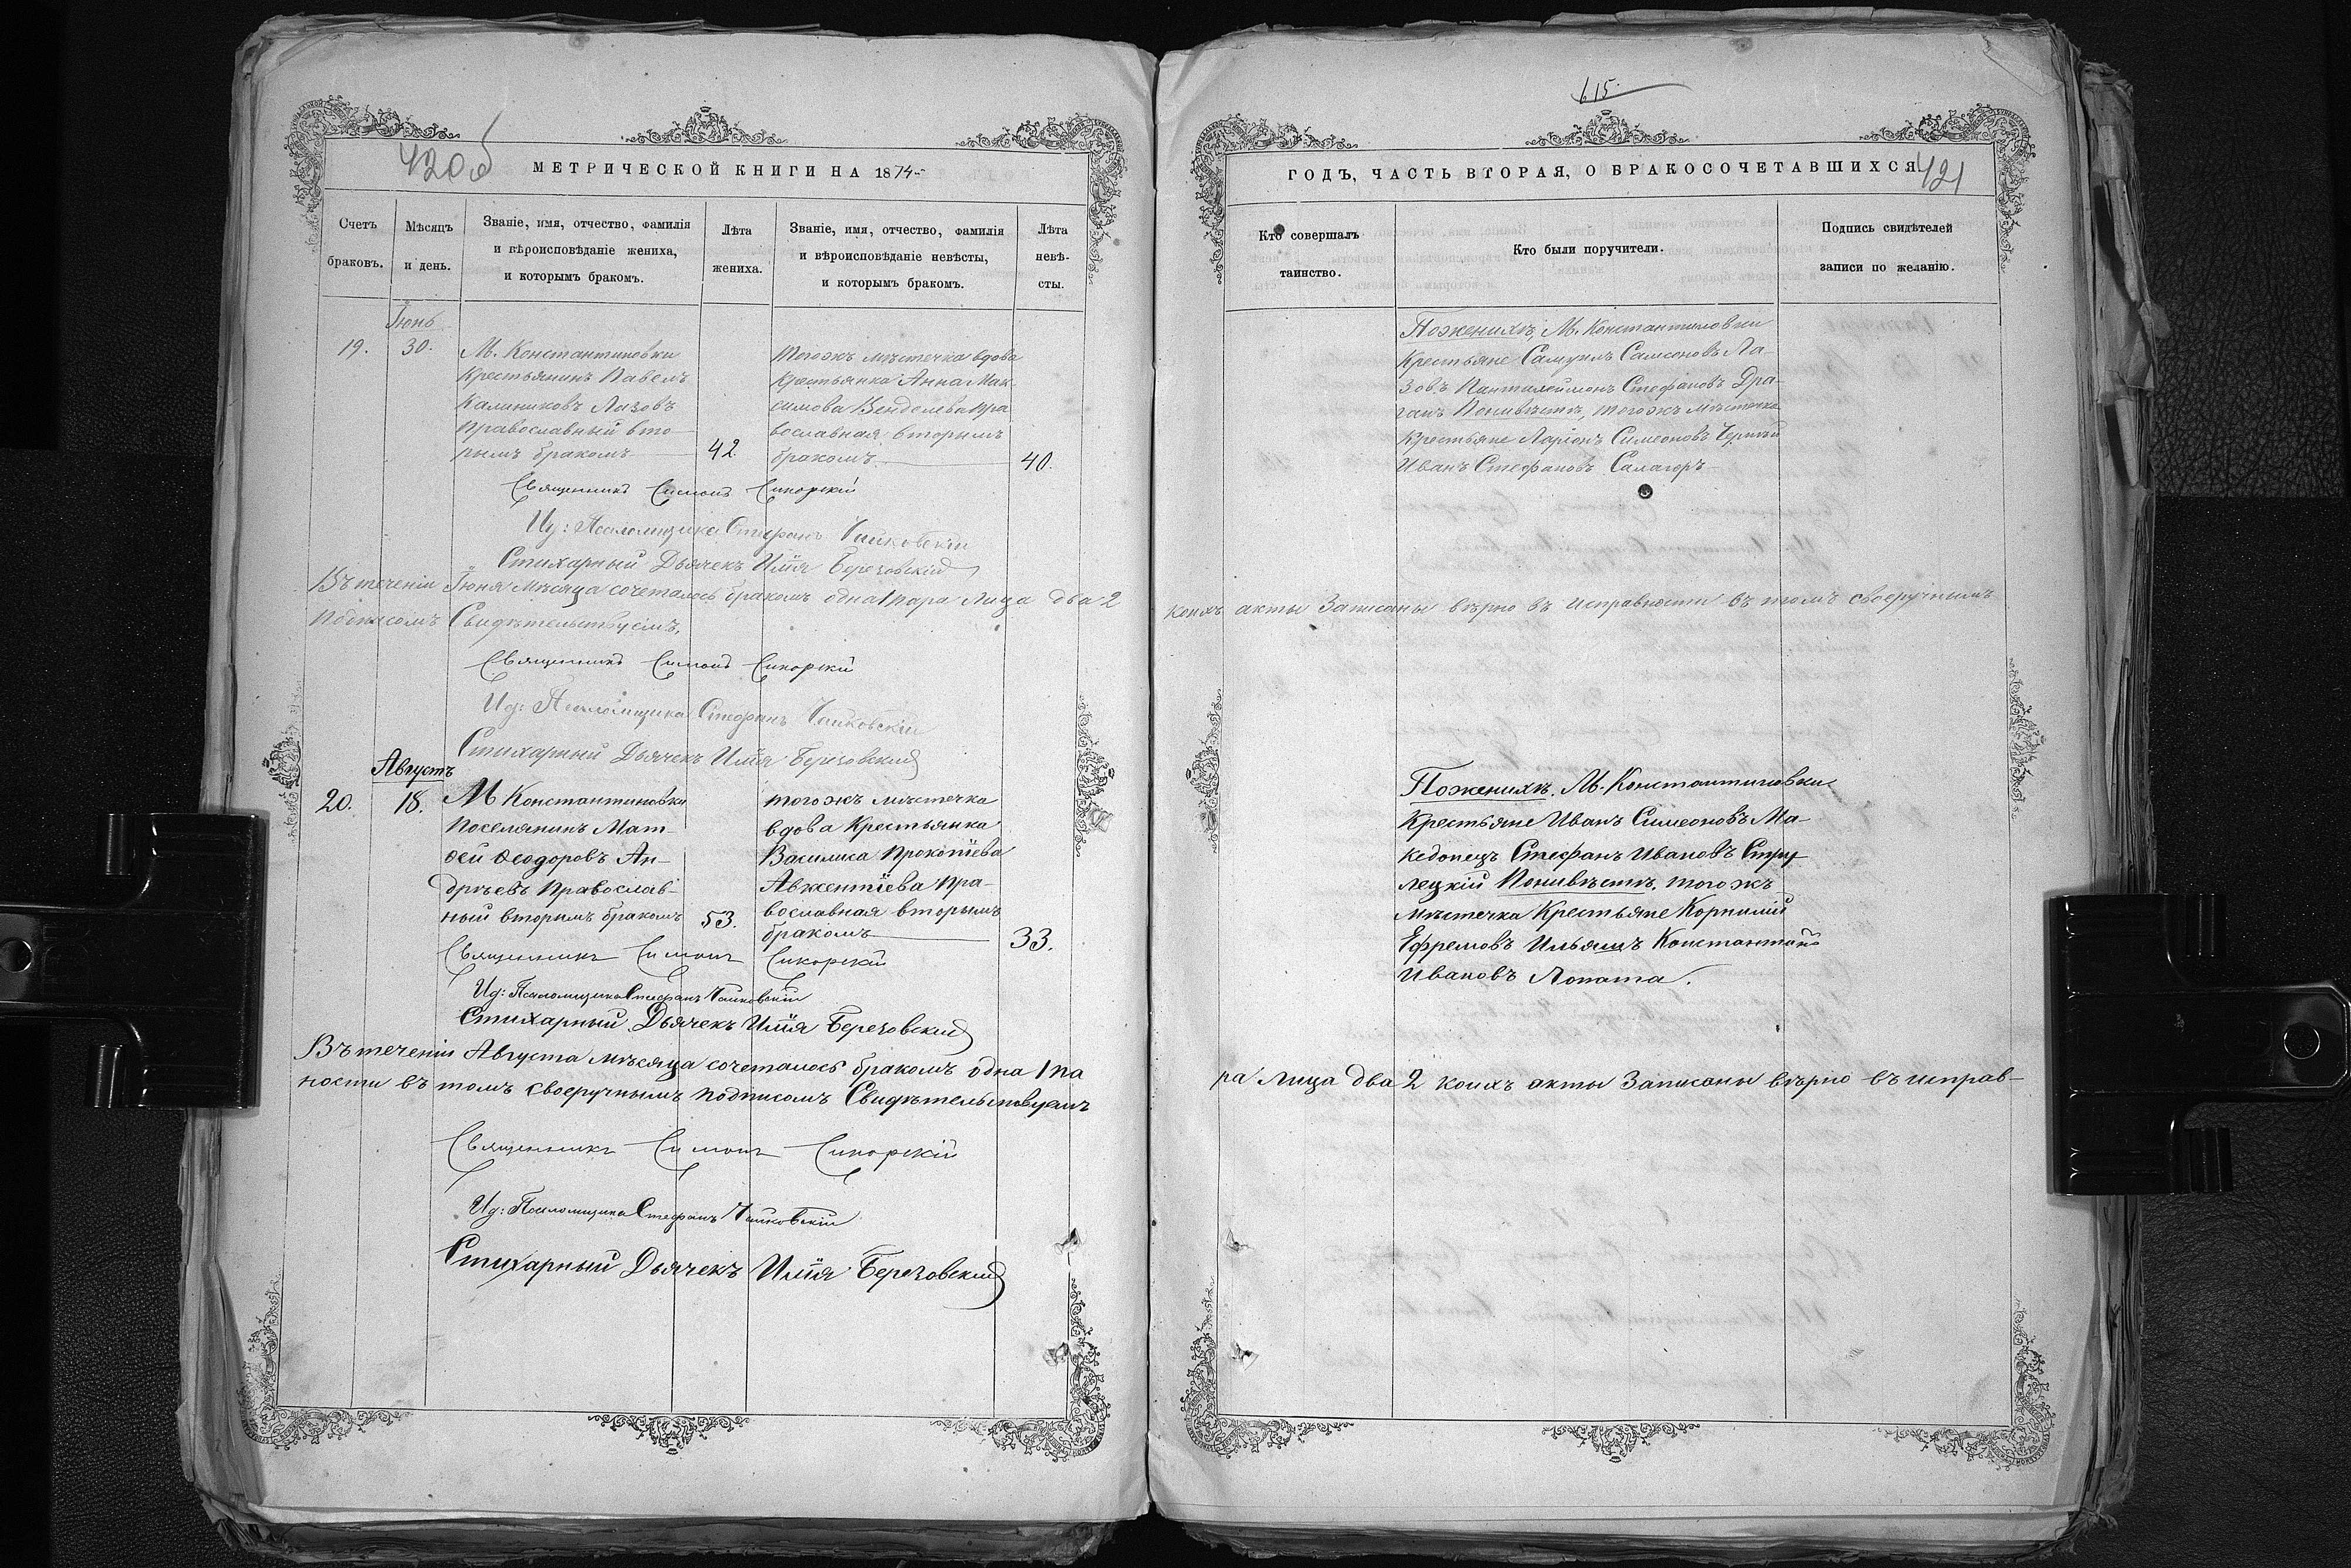 420об
МЕТРИЧЕСКОЙ КНИГИ НА 1874
Счетъ браковъ.
Мѣсяцъ и день.
Званіе, имя, отчество, фамилія
и вѣроисповѣданіе жениха,
и которымъ бракомъ.
Лѣта
жениха.
Званіе, имя, отчество, фамилія
и вѣроисповѣданіе невѣсты,
и которымъ бракомъ.
Лѣта
невѣ-
сты.
Іюнь
19. 30.
М. Константиновки
Крестьянинъ Павелъ
Калиниковъ Лазовъ
Православный вто-
рымъ бракомъ
42.
тогожъ мѣстечка вдова
Крестьянка Анна Мак-
симова Венделева пра
вославная вторымъ
бракомъ
40.
Священникъ Симонъ Сикорскій
Ид: Псаломщика Стефанъ Чайковскій
Стихарный Дьячекъ Илія Березовскій
Въ теченіи Іюня мѣсяца сочеталось бракомъ одна 1 пара лица два 2
подписомъ Свидѣтельствуемъ,
Священникъ Симонъ Сикорскій
Ид: Псаломщика Стефанъ Чайковскій
Стихарный Дьячекъ Илія Березовскій
Августъ
20. 18.
М Константиновки
Поселянинъ Мат-
ѳей Ѳеодоровъ Ан-
дрѣевъ Православ-
ный вторымъ бракомъ
53.
тогожъ мѣстечка
вдова Крестьянка
Василиса Прокопіева
Авксентіева пра-
вославная вторымъ
бракомъ
33.
Священникъ Симонъ Сикорскій
Ид: Псаломщика Стефанъ Чайковскій
Стихарный Дьячекъ Илія Березовскій
Въ теченіи Августа мѣсяца сочеталось бракомъ одна 1 па
ности въ томъ своеручнымъ подписомъ Свидѣтельствуемъ
Священникъ Симонъ Сикорскій
Ид: Псаломщика Стефанъ Чайковскій
Стихарный Дьячекъ Илія Березовскій
615
421
ГОДЪ, ЧАСТЬ ВТОРАЯ, О БРАКОСОЧЕТАВШИХСЯ
Кто совершалъ
таинство.
Кто были поручители.
Подпись свидѣтелей
записи по желанію.
По женихѣ, М. Константиновки
Крестьяне Самуилъ Самсоновъ Ла-
зовъ Пантелеймонъ Стефановъ Дра-
ганъ По невѣстѣ, тогожъ мѣстечка
Крестьяне Ларіонъ Симеоновъ Черный
Иванъ Стефановъ Салагоръ
коихъ акты Записаны вѣрно въ исправности въ томъ своеручнымъ
По женихѣ. М. Константиновки
Крестьяне Иванъ Симеоновъ Ма-
кедонецъ Стефанъ Ивановъ Стру-
лецкій По невѣстѣ. тогожъ
мѣстечка Крестьяне Корнилій
Ефремовъ Ильяшъ Константинъ
Ивановъ Лопата.
ра лица два 2 коихъ акты Записаны вѣрно въ исправ-